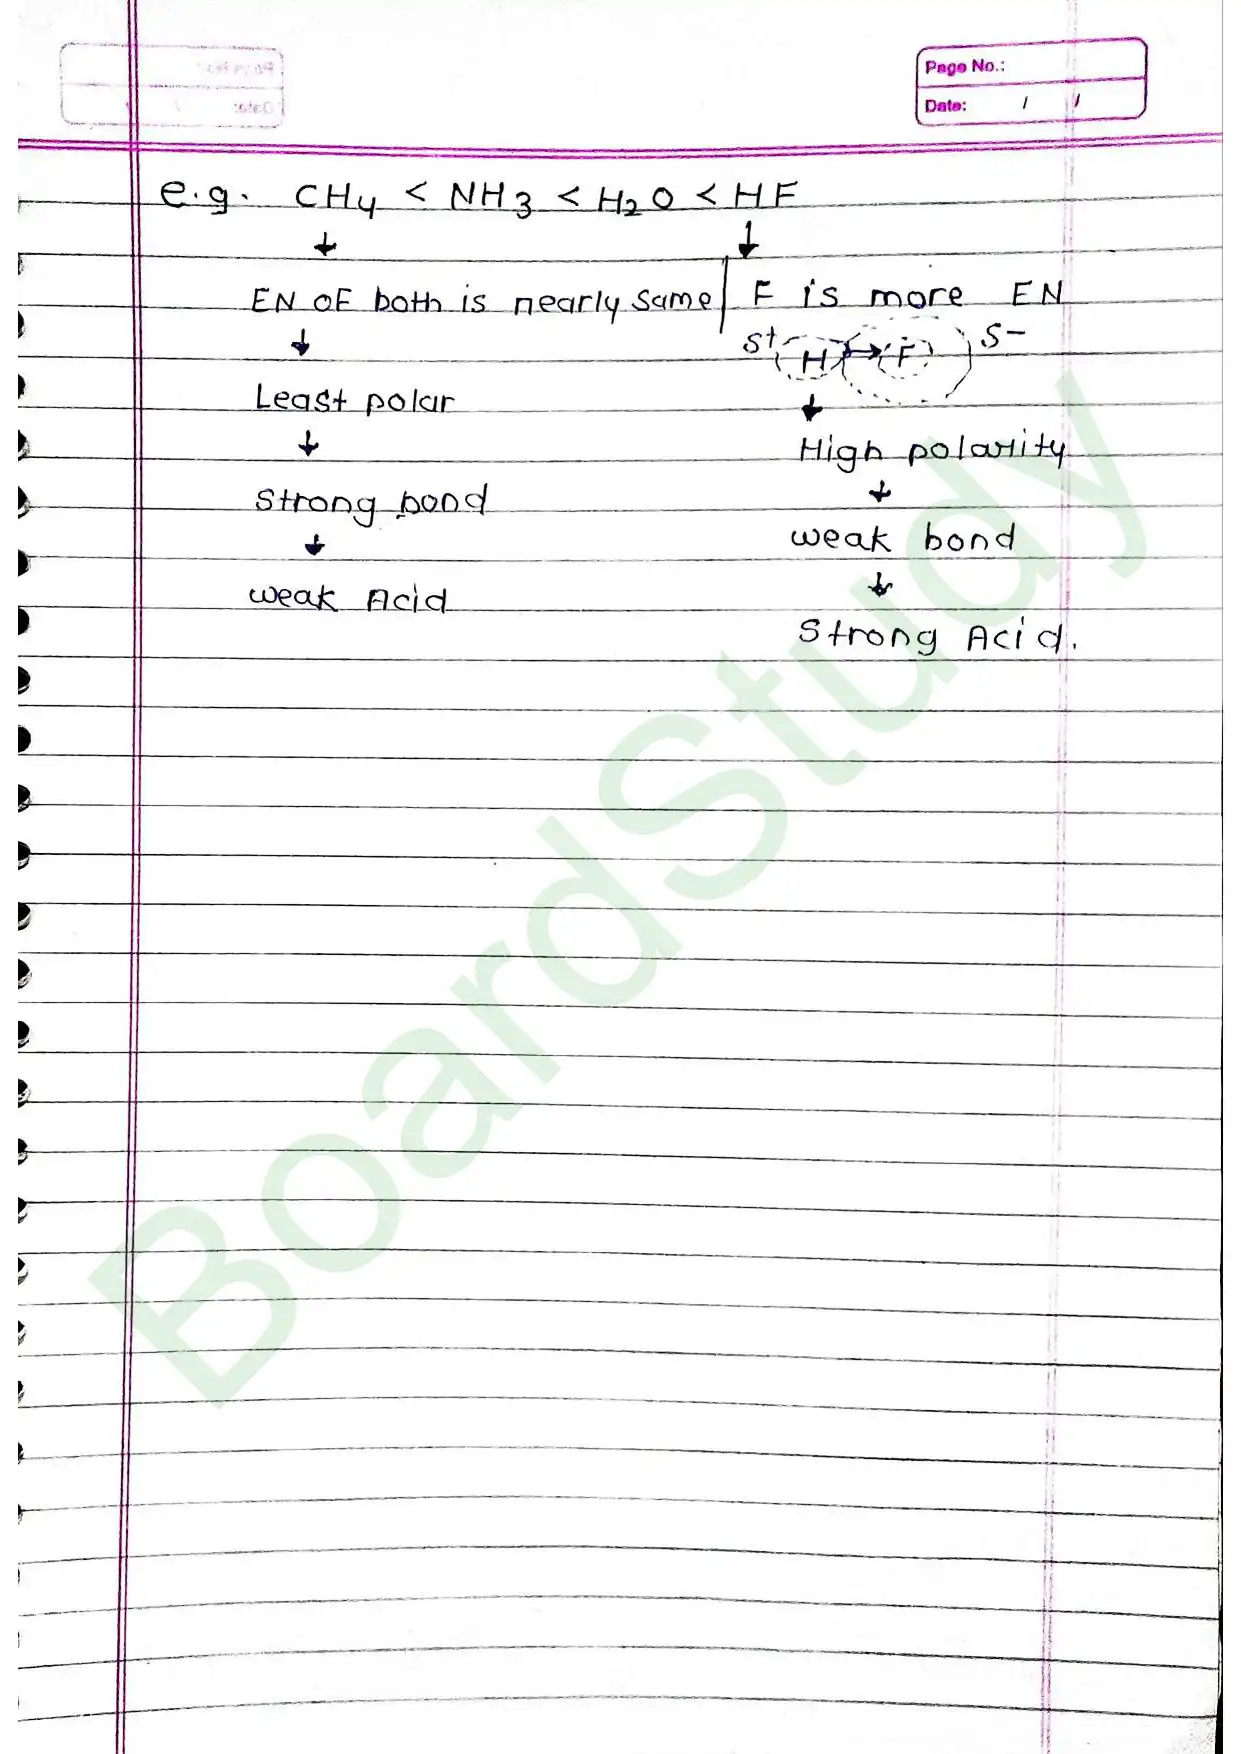 Page No.:
Date: / /
e.g. CH4 < NH3 < H2O < HF
↓ ↓
EN OF both is nearly same | F is more EN
↓ S+ H ↦ F S-
Least polar ↓
↓ High polarity
Strong bond ↓
↓ weak bond
weak Acid ↓
Strong Acid.
BoardStudy